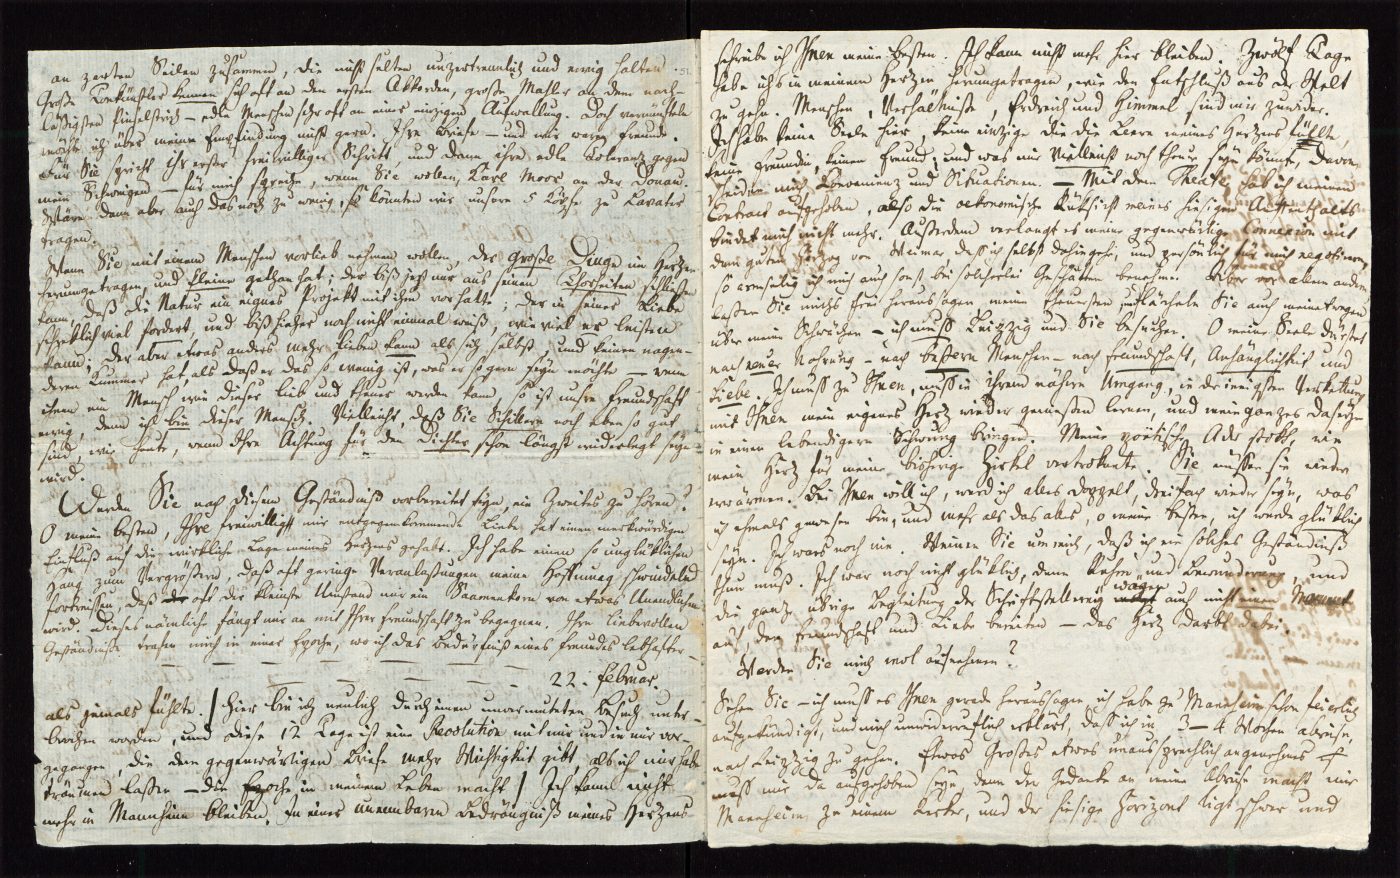 an zarten Seilen zusammen, die nicht selten unzertrennlich und ewig halten.
Große Tonkünstler kennen sich oft an den ersten Akkorden, große Mahler an dem nach-
läßigsten Pinselstrich – edle Menschen sehr oft an einer einzigen Aufwallung. Doch vernünfteln
möchte ich über meine Empfindung nicht gern. Ihre Briefe – und wir waren Freunde.
Für Sie spricht Ihr erster, freiwilliger Schritt, und dann ihre edle Toleranz gegen
mein Schweigen – für mich spreche, wenn Sie wollen, Karl Moor an der Donau.
Wäre denn aber auch das noch zu wenig, so könnten wir unsere 5 Köpfe zu Lavater
tragen.
Wenn Sie mit einem Menschen vorlieb nehmen wollen, der große Dinge im Herzen
herumgetragen, und kleine gethan hat; der biß jezt nur aus seinen Thorheiten schließen
kann, daß die Natur ein eignes Projekt mit ihm vorhatte; der in seiner Liebe
schreklich viel fordert, und biß hieher noch nicht einmal weiß, wie viel er leisten
kann; der aber etwas anders mehr lieben kann als sich selbst, und keinen nagen-
deren Kummer hat, als daß er das so wenig ist, was er so gern seyn möchte – wenn
ihnen ein Mensch wie dieser lieb und theuer werden kann, so ist unsre Freundschaft
ewig, denn ich bin dieser Mensch. Vielleicht, daß Sie Schillern noch eben so gut
sind, wie heute, wenn Ihre Achtung für den Dichter schon längst widerlegt seyn
wird.
Werden Sie nach diesem Geständniß vorbereitet seyn, ein Zweites zu hören?
O meine besten, Ihre freiwilligst mir entgegen kommende Liebe hat einen merkwürdigen
Einfluß auf die wirkliche Lage meines Herzens gehabt. Ich habe einen so unglüklichen
Hang zum Vergrößern, daß oft geringe Veranlaßungen meine Hoffnung schwindelnd
fortreissen, daß oft der kleinste Umstand mir ein Saamenkorn von etwas Unendlichem
wird. Dieses nämliche fängt nur an mit Ihrer Freundschaft zu begegnen. Ihre liebevollen
Geständniße trafen mich in einer Epoche, wo ich das Bedürfniß eines Freundes lebhafter
22. Februar.
als jemals fühlte / hier bin ich neulich durch einen unvermuteten Besuch unter-
brochen worden, und diese 12 Tage ist eine Revolution mit mir und in mir vor-
gegangen, die dem gegenwärtigen Briefe mehr Wichtigkeit gibt, als ich mir habe
träumen lassen – die Epoche in meinem Leben macht / Ich kann nicht
mehr in Mannheim bleiben. In einer unnennbaren Bedrängniß meines Herzens
schreibe ich Ihnen meine besten. Ich kann nicht mehr hier bleiben. Zwölf Tage
habe ichs in meinem Herzen herumgetragen, wie den Entschluß aus der Welt
zu gehn. Menschen, Verhältniße, Erdreich und Himmel sind mir zuwider.
Ich habe keine Seele hier, keine einzige die die Leere meines Herzens füllte,
keine Freundin, keinen Freund; und was mir vielleicht noch theuer seyn könnte, davon
scheiden mich Convenienz und Situationen. – Mit dem Theater hab ich meinen
Contract aufgehoben, also die oekonomische Rüksicht meines hiesigen Aufenthalts
bindet mich nicht mehr. Außerdem verlangt es meine gegenwärtige Connexion mit
dem guten Herzog von Weimar, daß ich selbst dahingehe, und persönlich für mich negotiere,
so armselig ich mich auch sonst bei solcherlei Geschäften benehme. Aber vor allem andern
lassen Sie michs frei heraussagen meine theuersten, und lächeln Sie auch meinetwegen
über meine Schwächen – ich muß Leipzig und Sie besuchen. O meine Seele dürstet
nach neuer Nahrung – nach beßern Menschen – nach Freundschaft, Anhänglichkeit und
Liebe. Ich muß zu Ihnen, muß in ihrem nähern Umgang, in der innigsten Verkettung
mit Ihnen mein eigenes Herz wieder geniessen lernen, und mein ganzes Daseyn
in einen lebendigern Schwung bringen. Meine poëtische Ader stokt, wie
mein Herz für meine bisherige Zirkel vertroknete. Sie müssen sie wieder
erwärmen. Bei Ihnen will ich, werd ich alles doppelt, dreifach wieder seyn, was
ich ehmals gewesen bin, und mehr als das alles o meine besten, ich werde glüklich
seyn. Ich wars noch nie. Weinen Sie um mich, daß ich ein solches Geständniß
thun muß. Ich war noch nicht glüklich, denn Ruhm und Bewunderung, und
die ganze übrige Begleitung der Schriftstellerei wägen auch nicht einen Moment
auf, den Freundschaft und Liebe bereiten – das Herz darbt dabei.
Werden Sie mich wol aufnehmen?
Sehen Sie – ich muß es Ihnen gerade heraussagen, ich habe zu Mannheim schon feierlich
aufgekündigt, und mich unwiederruflich erklärt, daß ich in 3–4 Wochen abreise,
nach Leipzig zu gehen. Etwas Großes etwas unaussprechlich angenehmes
muß mir da aufgehoben seyn, denn der Gedanke an meine Abreise macht mir
Mannheim zu einem Kerker, und der hiesige Horizont ligt schwer und